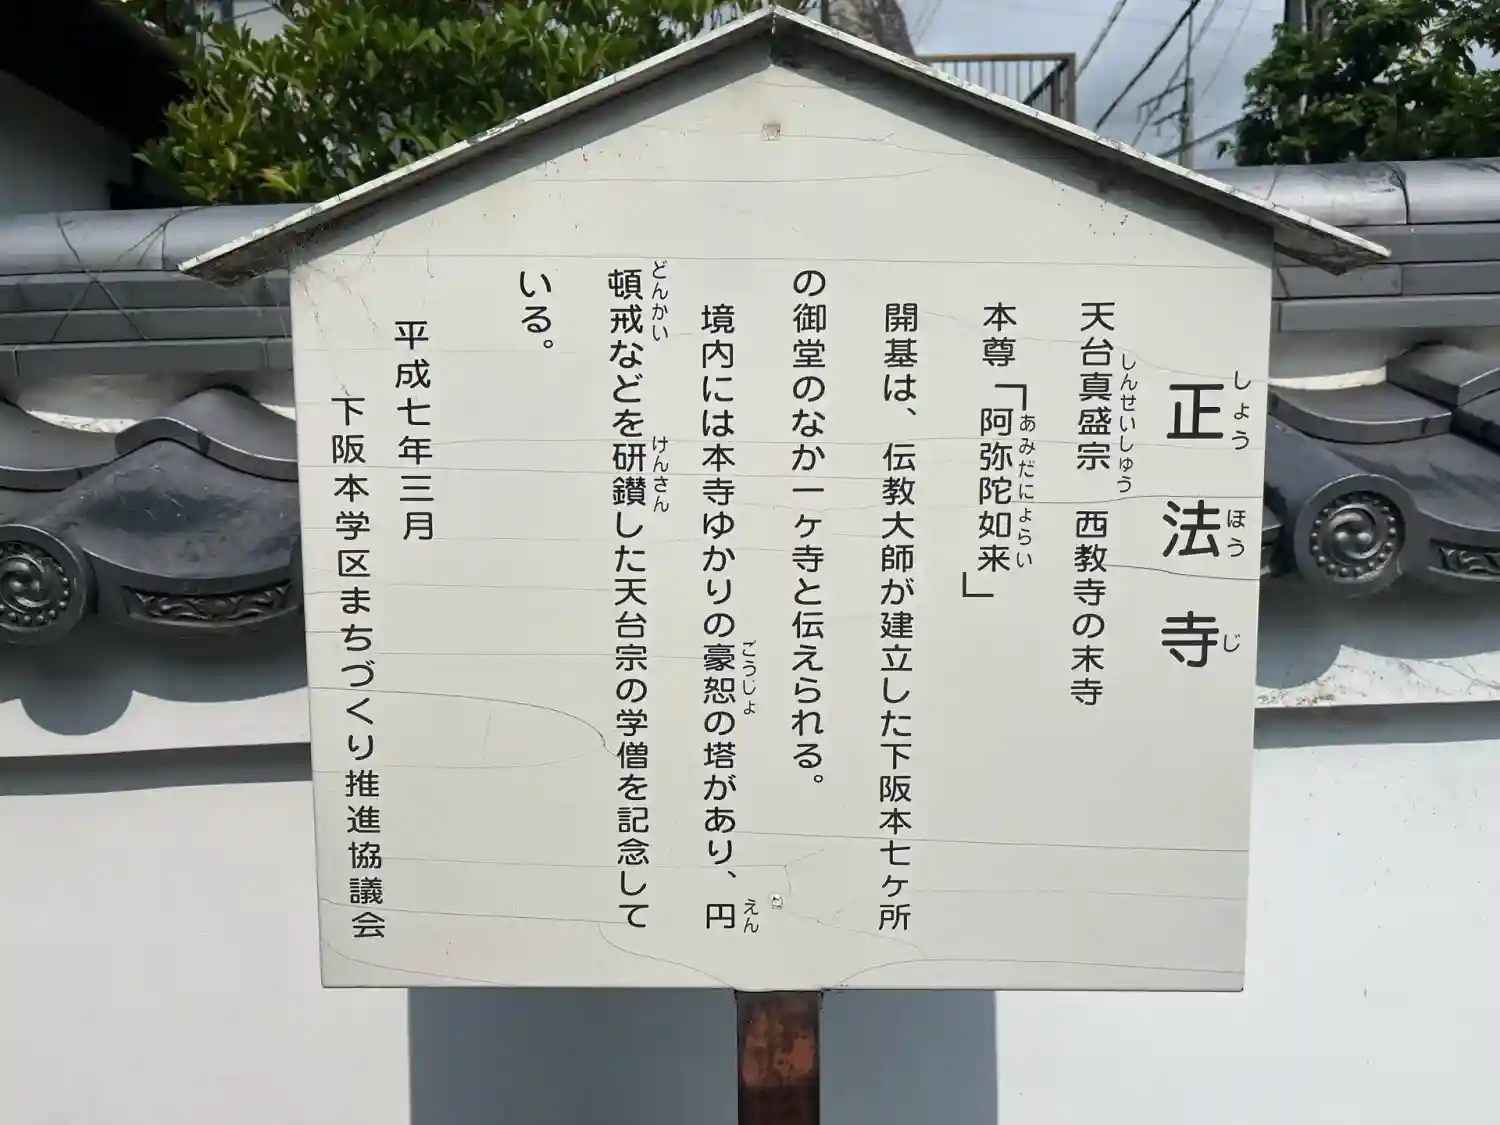 正法寺
しょうほうじ
天台真盛宗　西教寺の末寺
しんせいしゅう
本尊「阿弥陀如来」
あみだにょらい
開基は、伝教大師が建立した下阪本七ヶ所
の御堂のなか一ヶ寺と伝えられる。
境内には本寺ゆかりの豪恕の塔があり、円
ごうじょ
えん
頓戒などを研鑚した天台宗の学僧を記念して
どんかい
けんさん
いる。
平成七年三月
下阪本学区まちづくり推進協議会